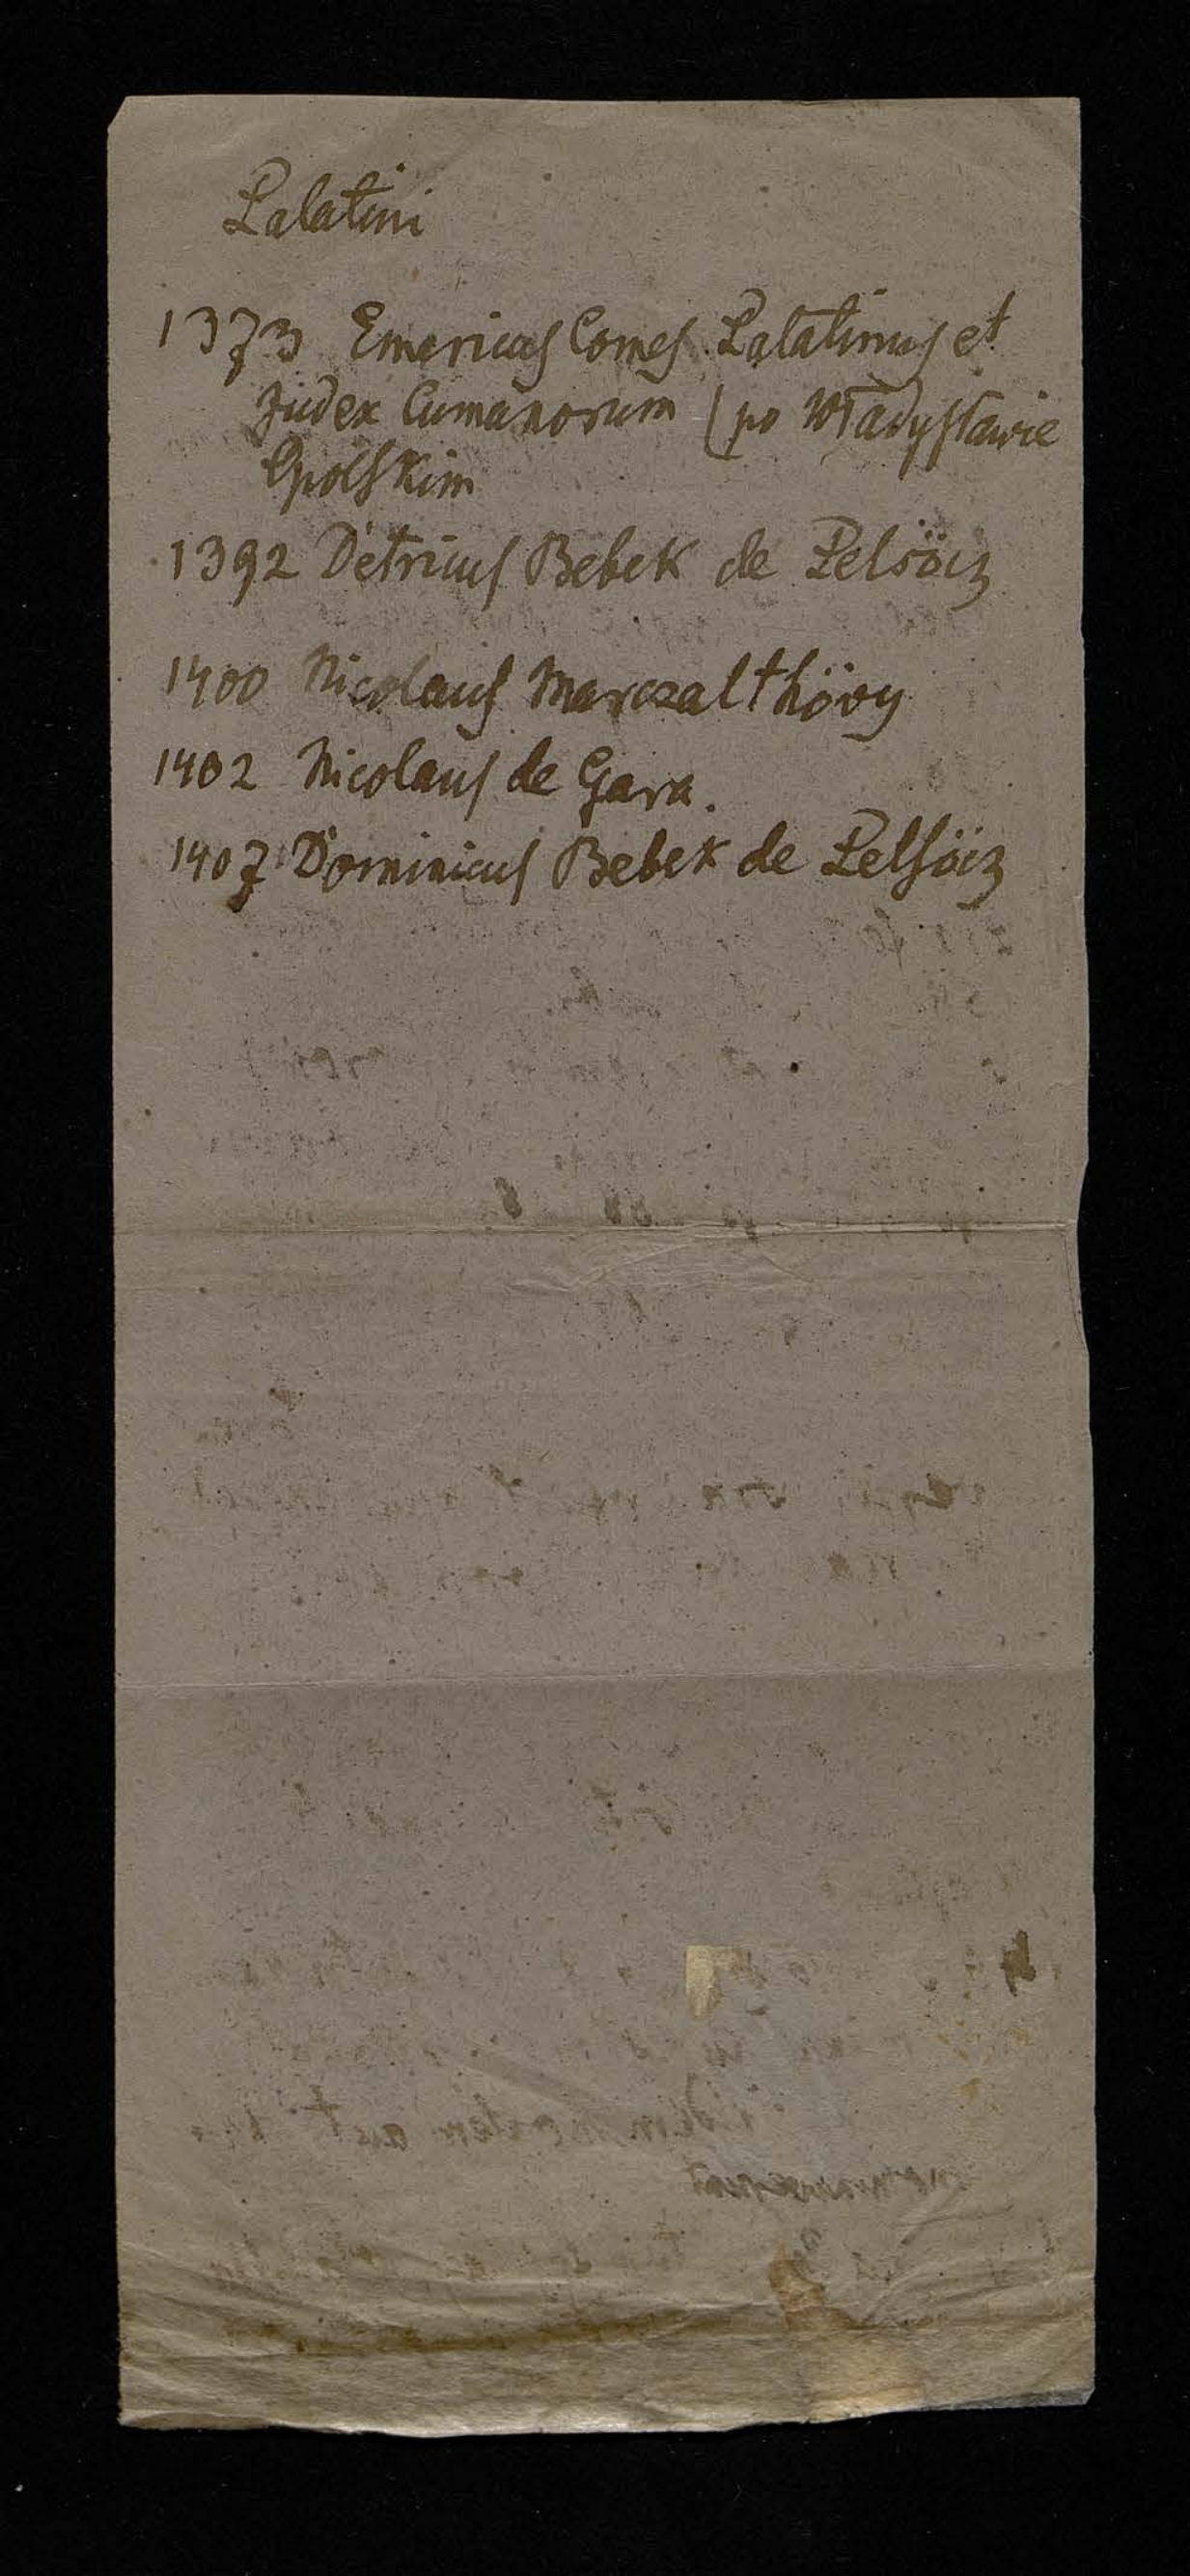 Palatini
1373 Emericus Comes Palatinus et
Judex Cumanorum (po Władysławie
Opolskim
1392 Detricus Bebek de Pelsöcz
1400 Nicolaus Marczalthövy
1402 Nicolaus de Gara.
1407 Dominicus Bebek de Pelsöcz